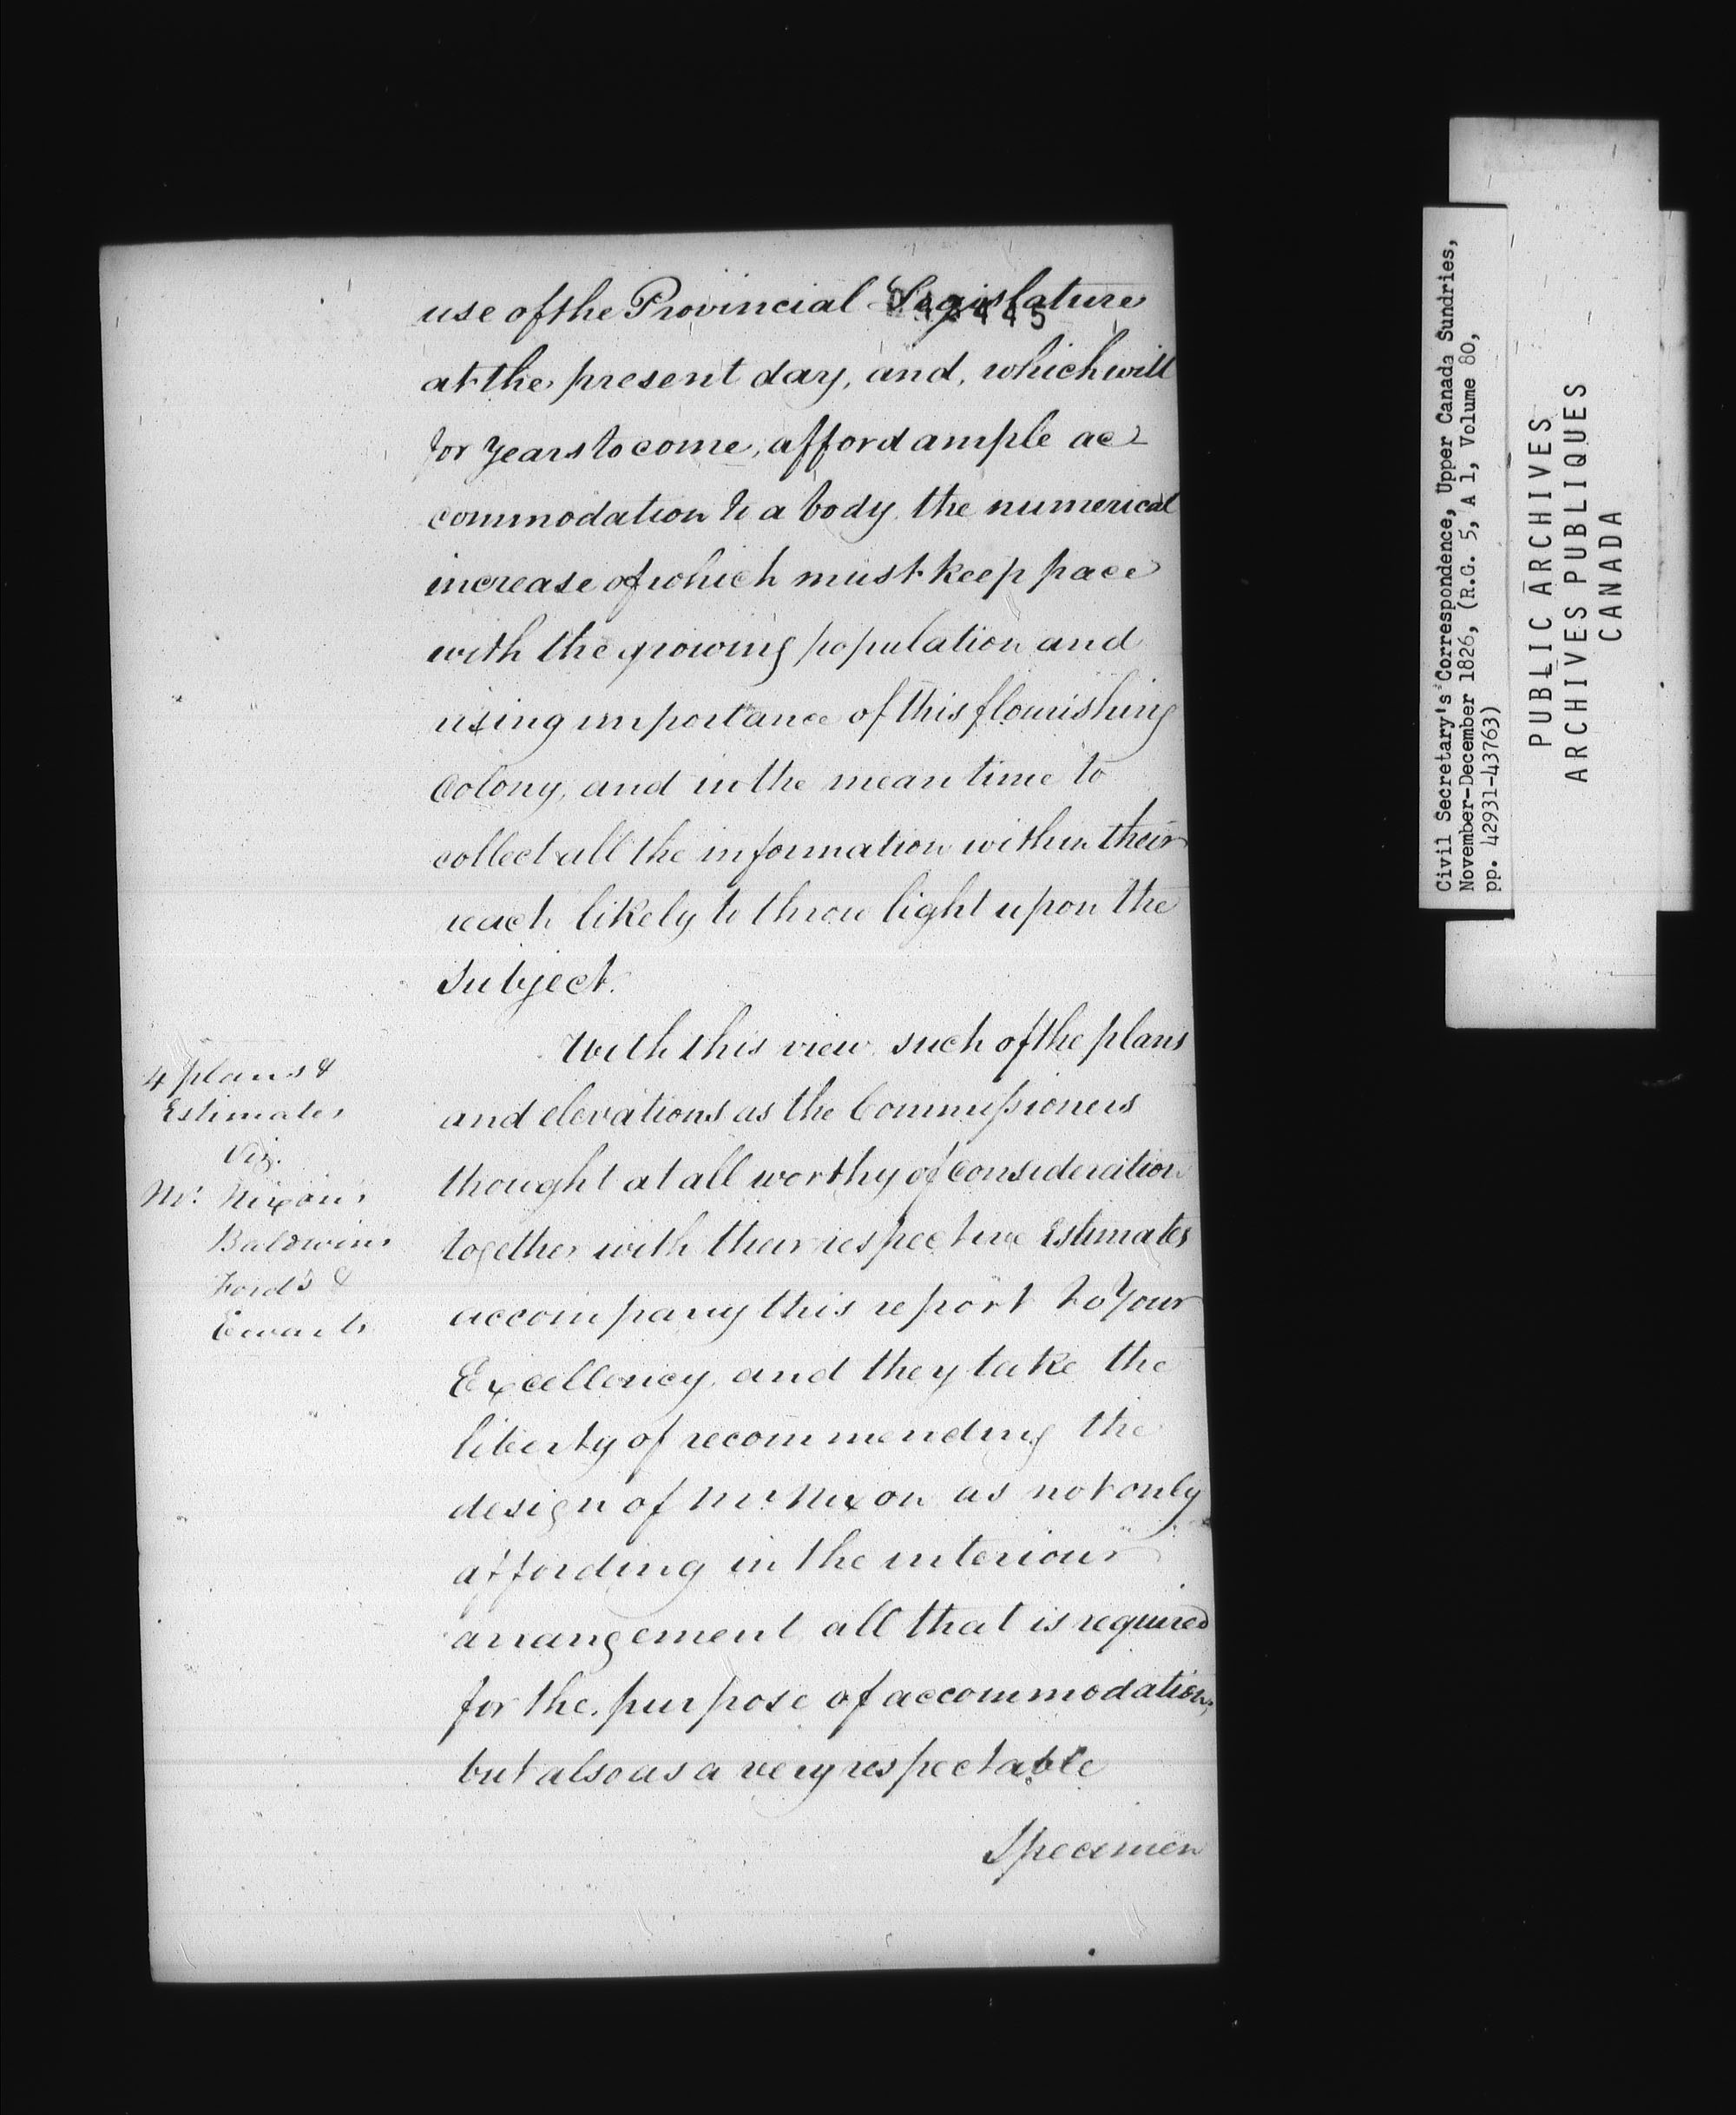 use of the Provincial Legislature
at the present day, and, which will
for years to come, afford ample ac-
commodation to a body the numerical
increase of which must keep pace
with the growing population and
rising importance of this flourishing
Colony, and in the mean time to
collect all the information within their
reach likely to throw light upon the
Subject.
With this view such of the plans
and elevations as the Commissioners
thought at all worthy of consideration
together with their respective Estimates
accompany this report to Your
Excellency, and they take the
liberty of recommending the
design of Mr. Nixon as not only
affording in the interiour
arrangement all that is required
for the purpose of accommodation,
but also as a very respectable
Specimen
4 plans &
Estimates
Viz.
Mr. Nixon's
Baldwin's
Ford's &
Ewart's
Civil Secretary's Correspondence, Upper Canada Sundries,
November-December 1826, (R.G. 5, A 1, Volume 80,
pp. 42931-43763)
PUBLIC ARCHIVES
ARCHIVES PUBLIQUES
CANADA